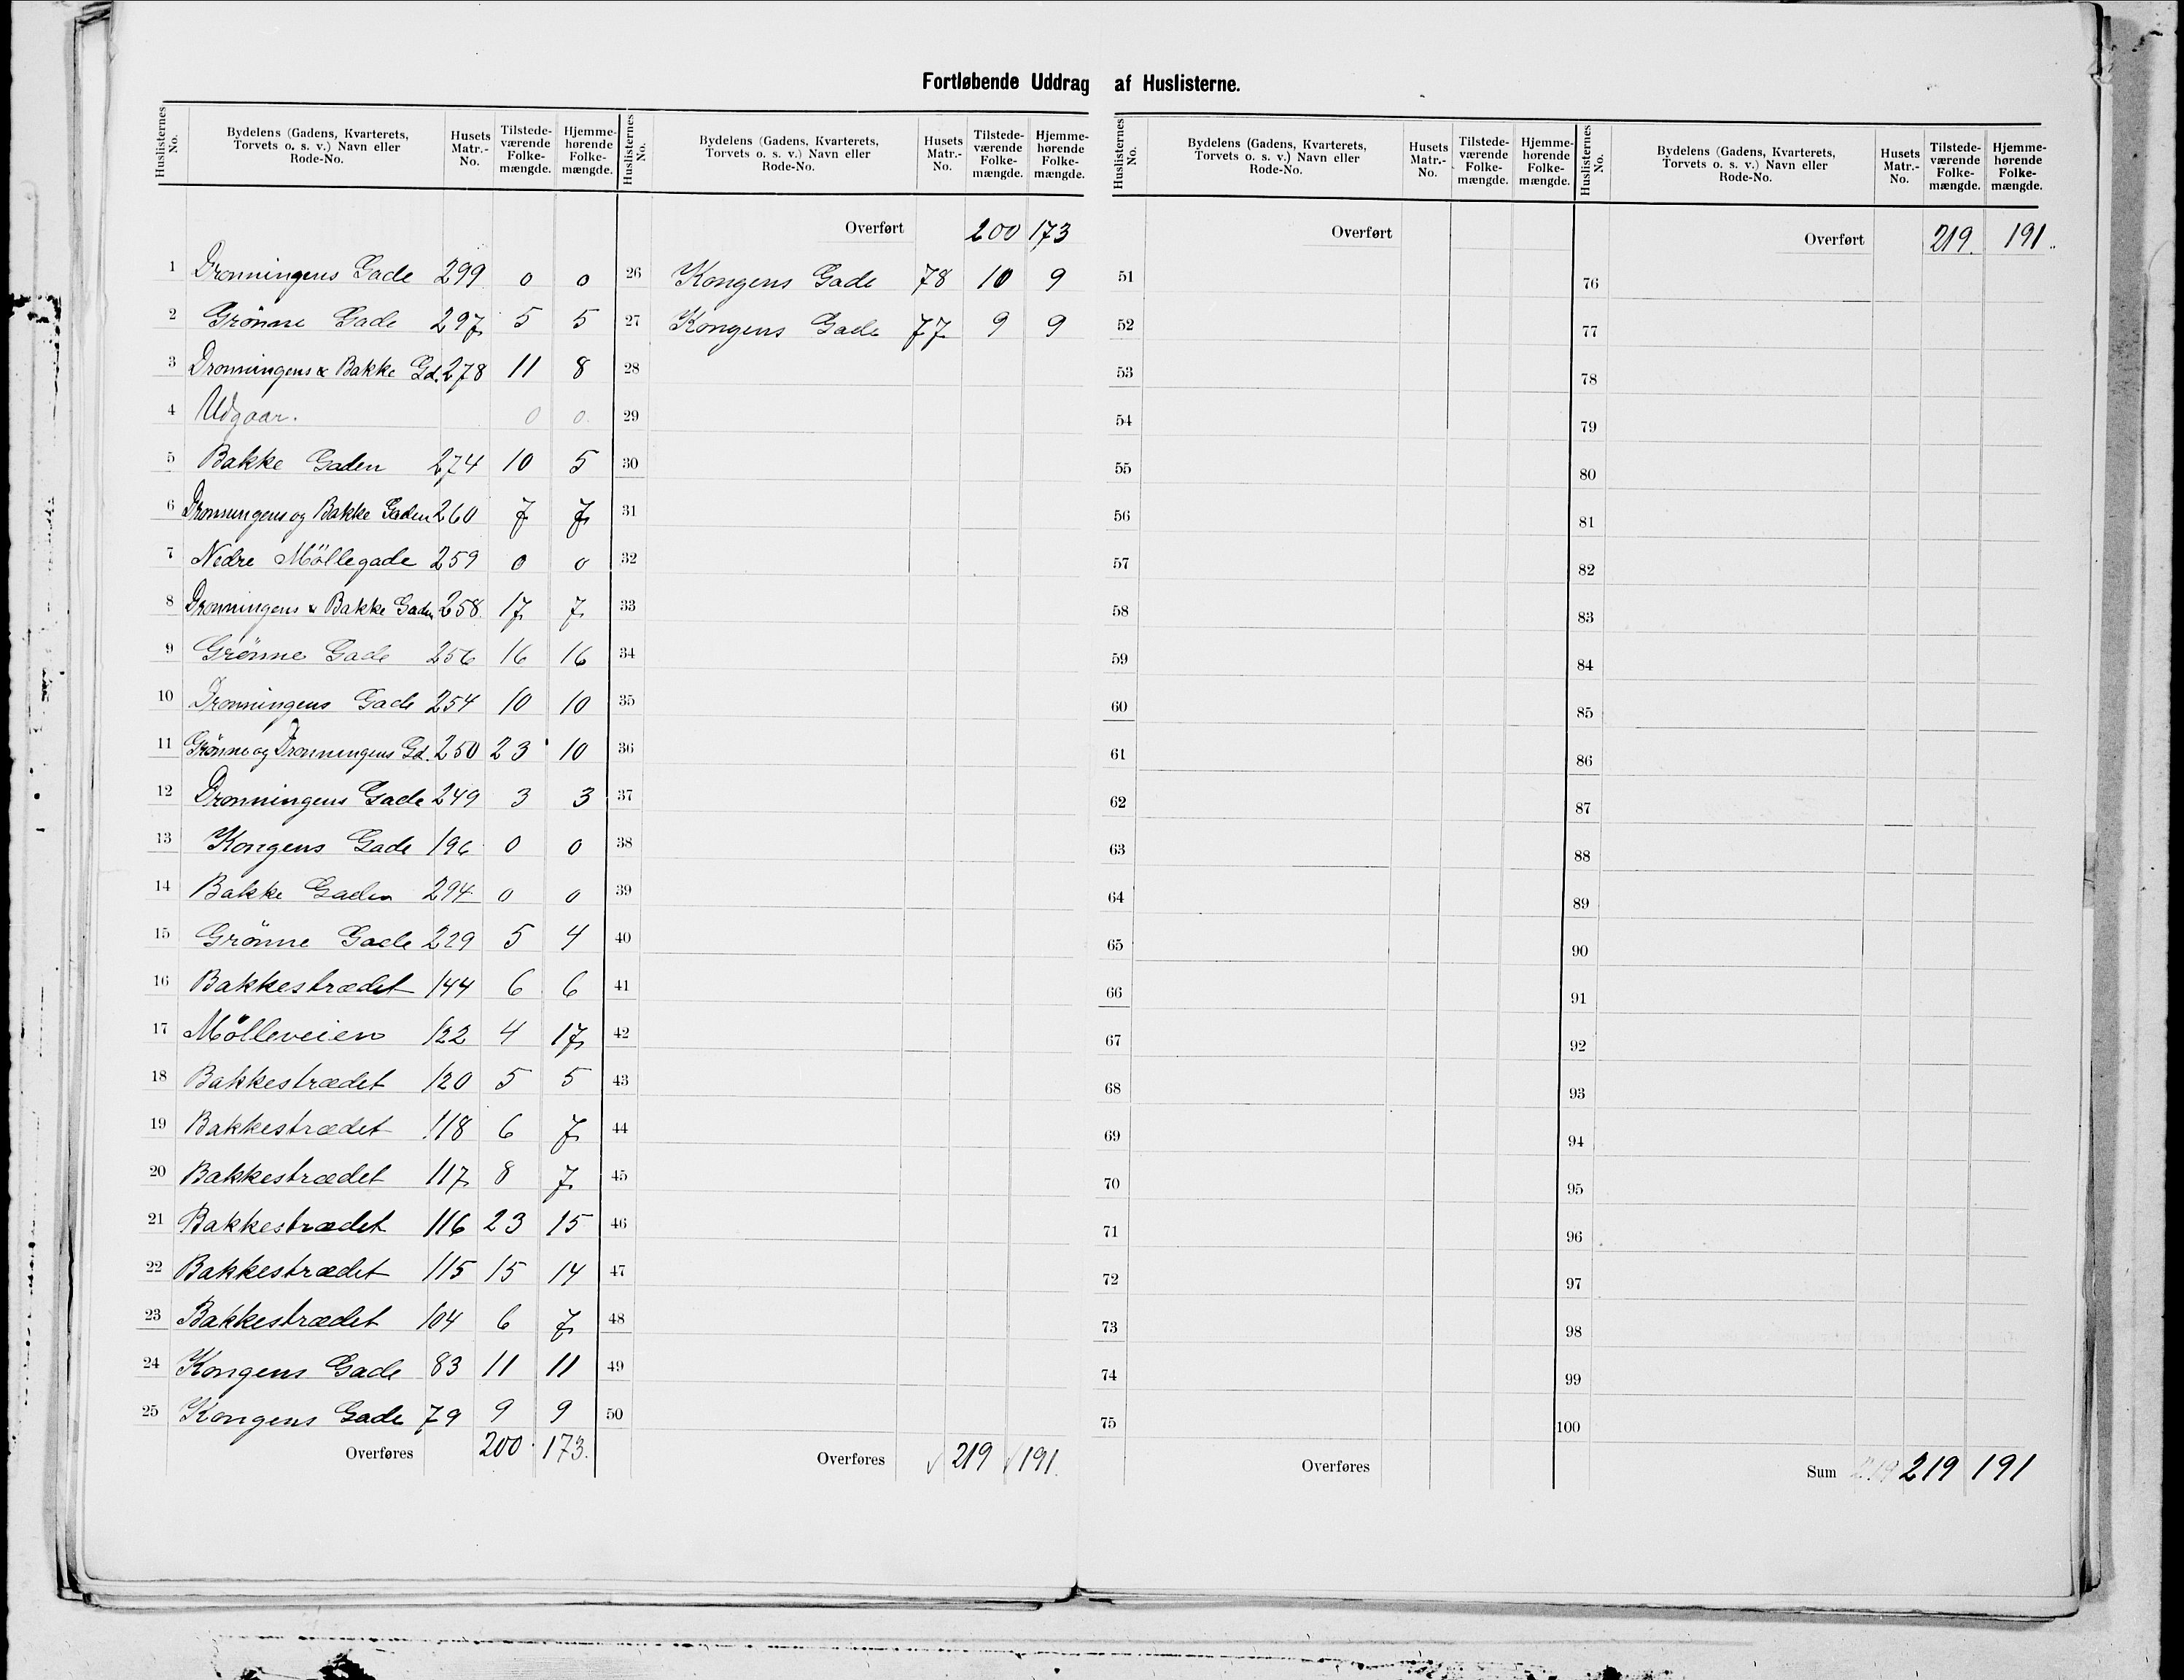 Fortløbende Uddrag af Huslisterne.
Huslisternes No. | Bydelens (Gadens, Kvarterets, Torvets o. s. v.) Navn eller Rode-No. | Husets Matr.-No. | Tilstedeværende Folkemængde. | Hjemmehørende Folkemængde.
1 Dronningens Gade 299 0 0
2 Grönne Gade 297 5 5
3 Dronningens & Bakke Gd. 278 11 8
4 Udgaar. 0 0
5 Bakke Gaden 274 10 5
6 Dronningens og Bakke Gaden 260 7 7
7 Nedre Möllegade 259 0 0
8 Dronningens & Bakke Gaden 258 17 7
9 Grönne Gade 256 16 16
10 Dronningens Gade 254 10 10
11 Grönne og Dronningens Gd. 250 23 10
12 Dronningens Gade 249 3 3
13 Kongens Gade 196 0 0
14 Bakke Gaden 294 0 0
15 Grönne Gade 229 5 4
16 Bakkestrædet 144 6 6
17 Mölleveien 122 4 17
18 Bakkestrædet 120 5 5
19 Bakkestrædet 118 6 7
20 Bakkestrædet 117 8 7
21 Bakkestrædet 116 23 15
22 Bakkestrædet 115 15 14
23 Bakkestrædet 104 6 7
24 Kongens Gade 83 11 11
25 Kongens Gade 79 9 9
Overføres 200 173.
Huslisternes No. | Bydelens (Gadens, Kvarterets, Torvets o. s. v.) Navn eller Rode-No. | Husets Matr.-No. | Tilstedeværende Folkemængde. | Hjemmehørende Folkemængde.
Overført 200 173
26 Kongens Gade 78 10 9
27 Kongens Gade 77 9 9
28
29
30
31
32
33
34
35
36
37
38
39
40
41
42
43
44
45
46
47
48
49
50
Overføres √ 219 √ 191.
Huslisternes No. | Bydelens (Gadens, Kvarterets, Torvets o. s. v.) Navn eller Rode-No. | Husets Matr.-No. | Tilstedeværende Folkemængde. | Hjemmehørende Folkemængde.
Overført
51
52
53
54
55
56
57
58
59
60
61
62
63
64
65
66
67
68
69
70
71
72
73
74
75
Overføres
Huslisternes No. | Bydelens (Gadens, Kvarterets, Torvets o. s. v.) Navn eller Rode-No. | Husets Matr.-No. | Tilstedeværende Folkemængde. | Hjemmehørende Folkemængde.
Overført 219. 191.
76
77
78
79
80
81
82
83
84
85
86
87
88
89
90
91
92
93
94
95
96
97
98
99
100
Sum 219 219 191